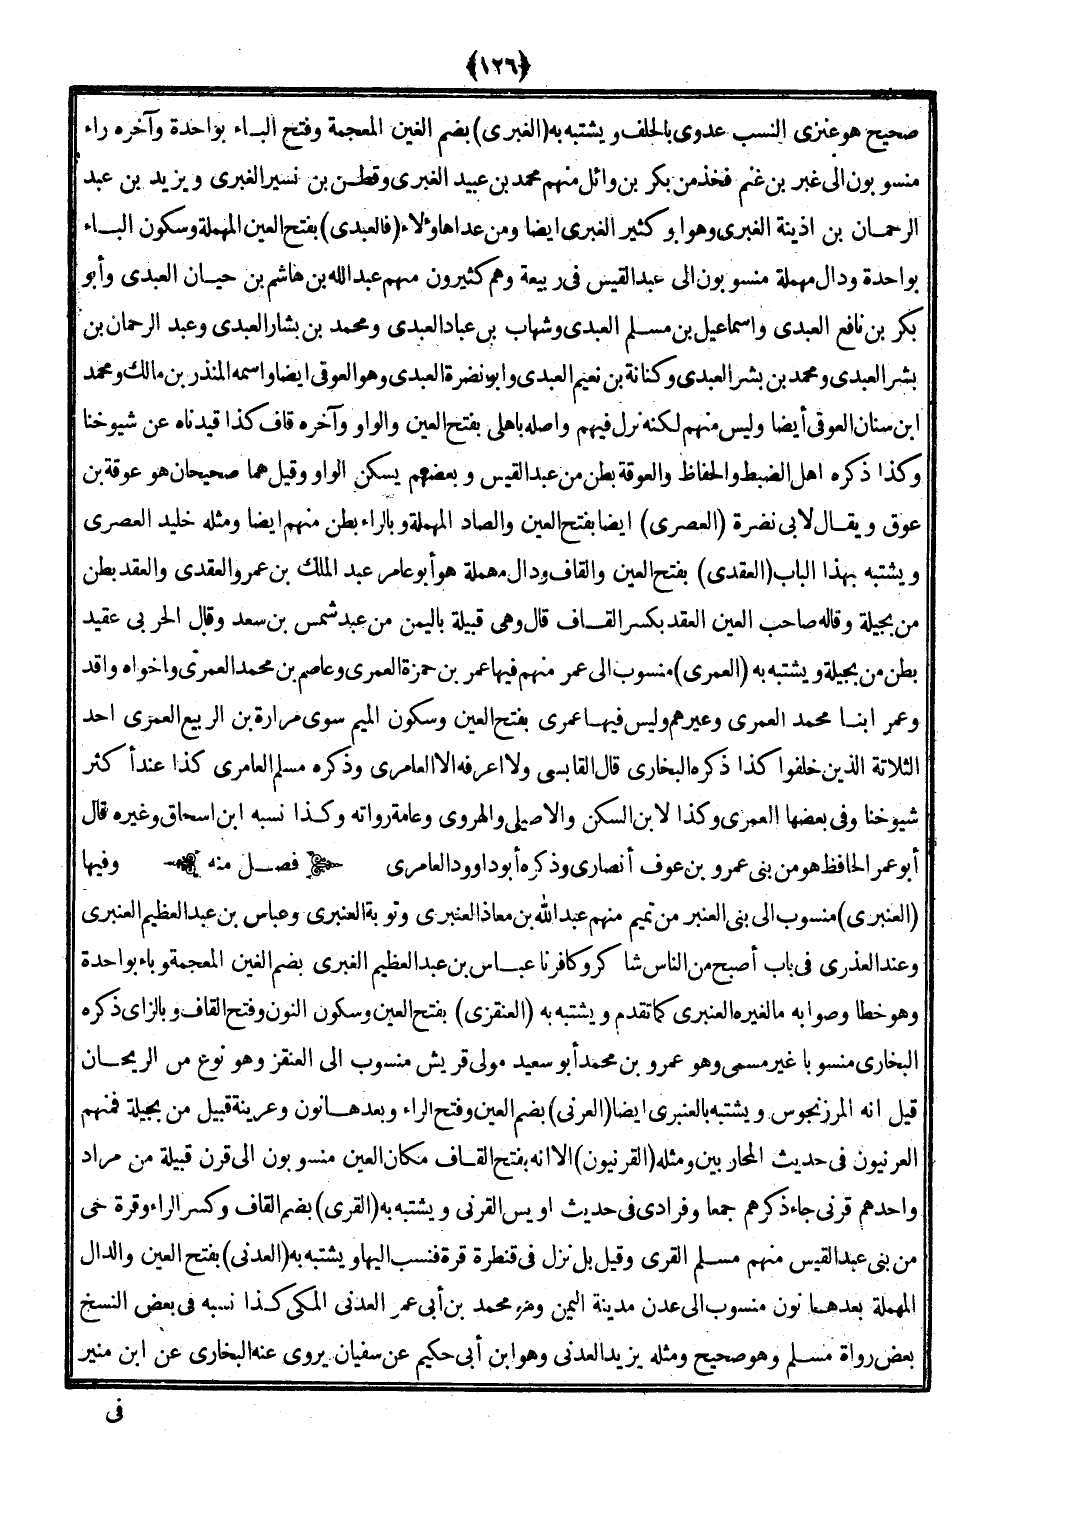 ﴿١٢٦﴾
صحيح هو عنزى النسب عدوى بالحلف ويشتبه به (الغبرى) بضم الغين المعجمة وفتح الباء بواحدة وآخره راء
منسوبون الى غبر بن غنم فخذ من بكر بن وائل منهم محمد بن عبيد الغبرى وقطن بن نسير الغبرى ويزيد بن عبد
الرحمان بن اذينة الغبرى وهو ابو كثير الغبرى ايضا ومن عدا هاؤلاء (فالعبدى) بفتح العين المهملة وسكون الباء
بواحدة ودال مهملة منسوبون الى عبد القيس فى ربيعة وهم كثيرون منهم عبد الله بن هاشم بن حيان العبدى وأبو
بكر بن نافع العبدى واسماعيل بن مسلم العبدى وشهاب بن عباد العبدى ومحمد بن بشار العبدى وعبد الرحمان بن
بشر العبدى ومحمد بن بشر العبدى وكنانة بن نعيم العبدى وابو نضرة العبدى وهو العوقى ايضا واسمه المنذر بن مالك ومحمد
ابن سنان العوقى أيضا وليس منهم لكنه نزل فيهم واصله باهلى بفتح العين والواو وآخره قاف كذا قيدناه عن شيوخنا
وكذا ذكره اهل الضبط والحفاظ والعوقة بطن من عبد القيس وبعضهم يسكن الواو وقيل هما صحيحان هو عوقة بن
عوق ويقال لابى نضرة (العصرى) ايضا بفتح العين والصاد المهملة وبالراء بطن منهم ايضا ومثله خليد العصرى
ويشتبه بهذا الباب (العقدى) بفتح العين والقاف ودال مهملة هو أبو عامر عبد الملك بن عمرو العقدى والعقد بطن
من بجيلة وقاله صاحب العين العقد بكسر القاف قال وهى قبيلة باليمن من عبد شمس بن سعد وقال الحربى عقيد
بطن من بجيلة ويشتبه به (العمرى) منسوب الى عمر منهم فيها عمر بن حمزة العمرى وعاصم بن محمد العمرى واخواه واقد
وعمر ابنا محمد العمرى وغيرهم وليس فيها عمرى بفتح العين وسكون الميم سوى مرارة بن الربيع العمرى احد
الثلاثة الذين خلفوا كذا ذكره البخارى قال القابسى ولا اعرفه الا العامرى وذكره مسلم العامرى كذا عند أكثر
شيوخنا وفى بعضها العمرى وكذا لابن السكن والاصيلى والهروى وعامة رواته وكذا نسبه ابن اسحاق وغيره قال
أبو عمر الحافظ هو من بنى عمرو بن عوف أنصارى وذكره أبو داوود العامرى فصل منه وفيها
(العنبرى) منسوب الى بنى العنبر من تميم منهم عبد الله بن معاذ العنبرى وتوبة العنبرى وعباس بن عبد العظيم العنبرى
وعند العذرى فى باب أصبح من الناس شاكر وكافر نا عباس بن عبد العظيم الغبرى بضم الغين المعجمة وباء بواحدة
وهو خطا وصوابه ما لغيره العنبرى كما تقدم ويشتبه به (العنقزى) بفتح العين وسكون النون وفتح القاف وبالزاى ذكره
البخارى منسوبا غير مسمى وهو عمرو بن محمد أبو سعيد مولى قريش منسوب الى العنقز وهو نوع من الريحان
قيل انه المرزنجوس ويشتبه بالعنبرى ايضا (العرنى) بضم العين وفتح الراء وبعدها نون وعرينة قبيل من بجيلة فمنهم
العرنيون فى حديث المحاربين ومثله (القرنيون) الا انه بفتح القاف مكان العين منسوبون الى قرن قبيلة من مراد
واحدهم قرنى جاء ذكرهم جمعا وفرادى فى حديث اويس القرنى ويشتبه به (القرى) بضم القاف وكسر الراء وقرة حى
من بنى عبد القيس منهم مسلم القرى وقيل بل نزل فى قنطرة قرة فنسب اليها ويشتبه به (العدنى) بفتح العين والدال
المهملة بعدها نون منسوب الى عدن مدينة اليمن وهو محمد بن أبى عمر العدنى المكى كذا نسبه فى بعض النسخ
بعض رواة مسلم وهو صحيح ومثله يزيد العدنى وهو ابن أبى حكيم عن سفيان يروى عنه البخارى عن ابن منير
فى